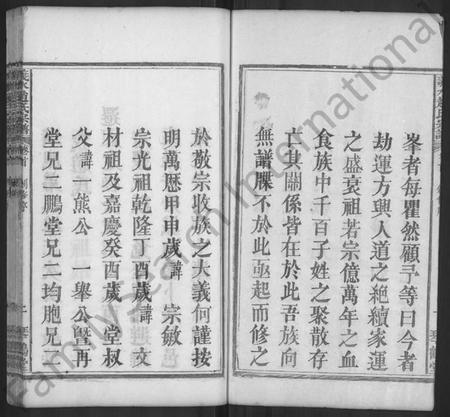 峯者每瞿然顧予等曰今者
劫運方與人道之絶續家運
之盛衰祖若宗億萬年之血
食族中千百子姓之聚散存
亡其關係皆在於此吾族向
無譜牒不於此亟起而修之
於敬宗收族之大義何謹按
明萬厯甲申歲諱　宗敏
宗光祖乾隆丁酉歲諱　文
材祖及嘉慶癸酉歲　堂叔
父諱　熊公　一舉公曁再
堂兄三鵬堂兄二均胞兄二
FamilySearch International